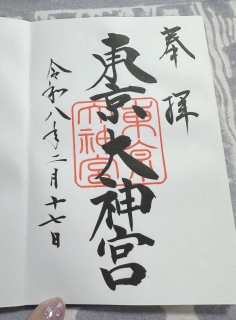 奉拝
東京大神宮
東京大神宮
令和八年二月十七日